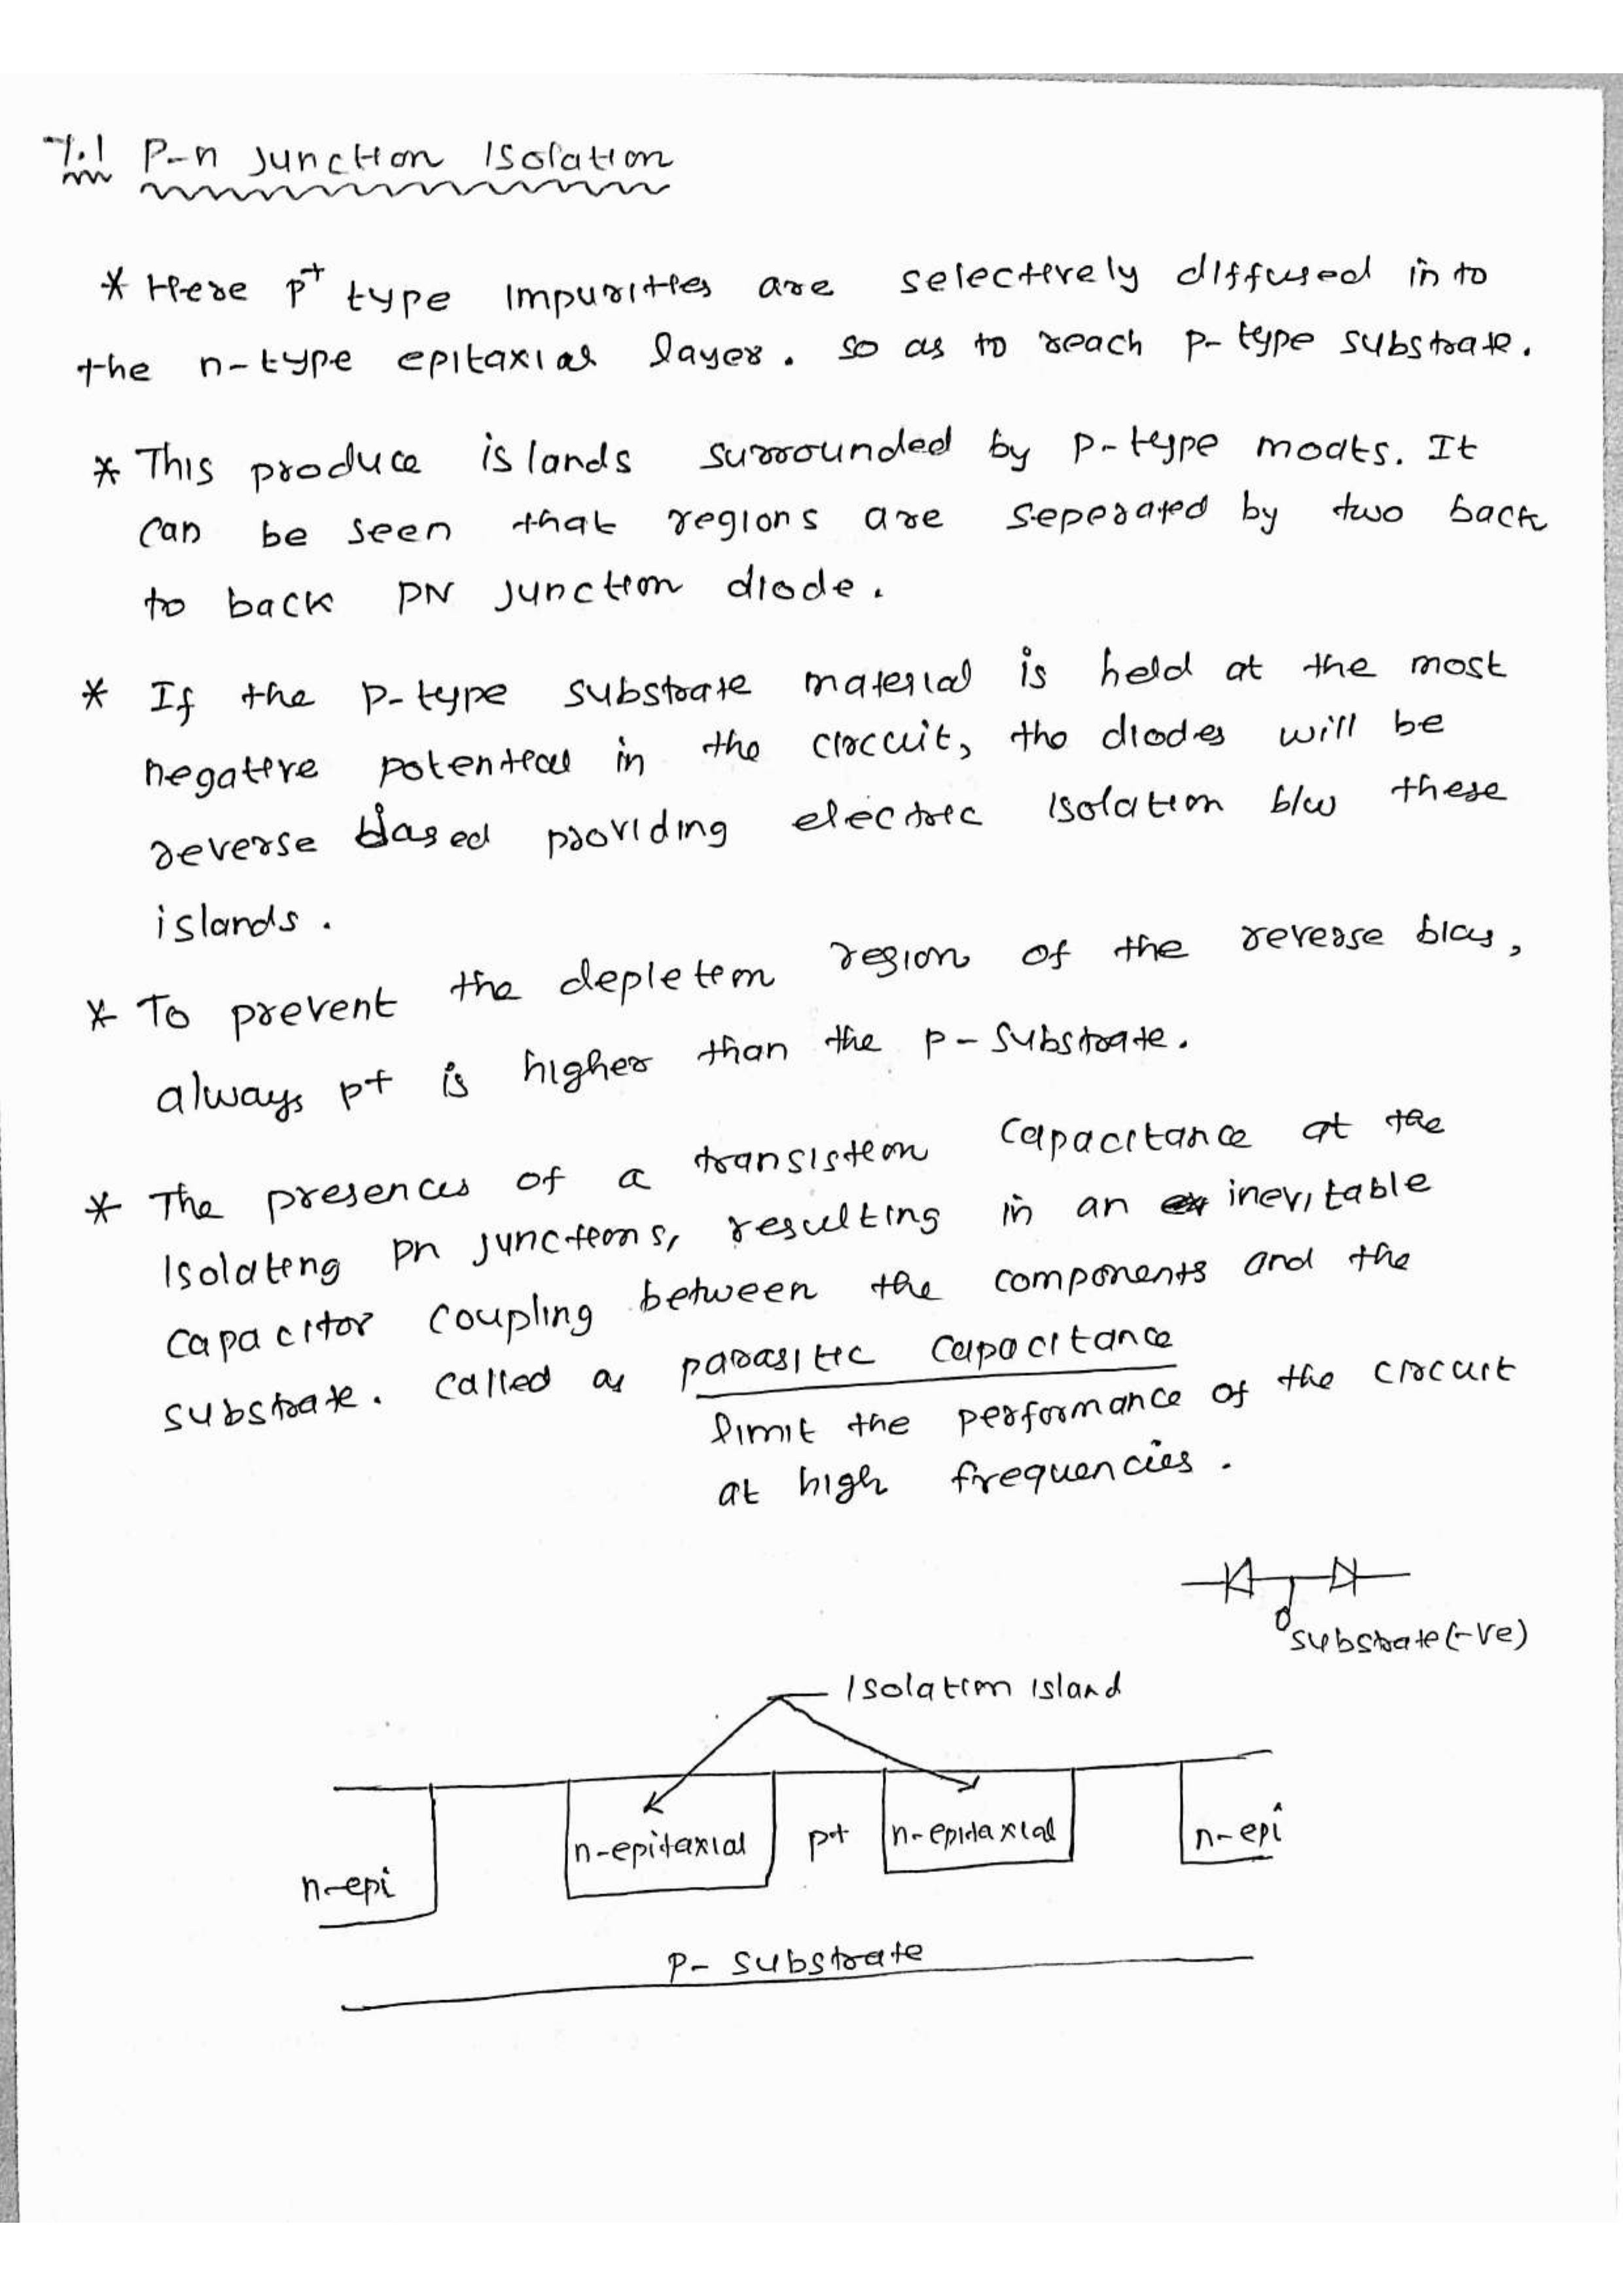 7.1 P-n Junction Isolation
* Here p+ type impurities are selectively diffused in to
the n-type epitaxial layer. so as to reach p-type substrate.
* This produce islands surrounded by p-type moats. It
can be seen that regions are seperated by two back
to back PN junction diode.
* If the p-type substrate material is held at the most
negative potential in the circuit, the diodes will be
reverse biased providing electric isolation b/w these
islands.
* To prevent the depletion region of the reverse bias,
always p+ is higher than the p-substrate.
* The presences of a transistion capacitance at the
Isolating pn junctions, resulting in an inevitable
capacitor coupling between the components and the
substrate. called as parasitic capacitance
limit the performance of the circuit
at high frequencies.
substrate (-ve)
Isolation island
n-epi n-epitaxial p+ n-epitaxial n-epi
P- substrate